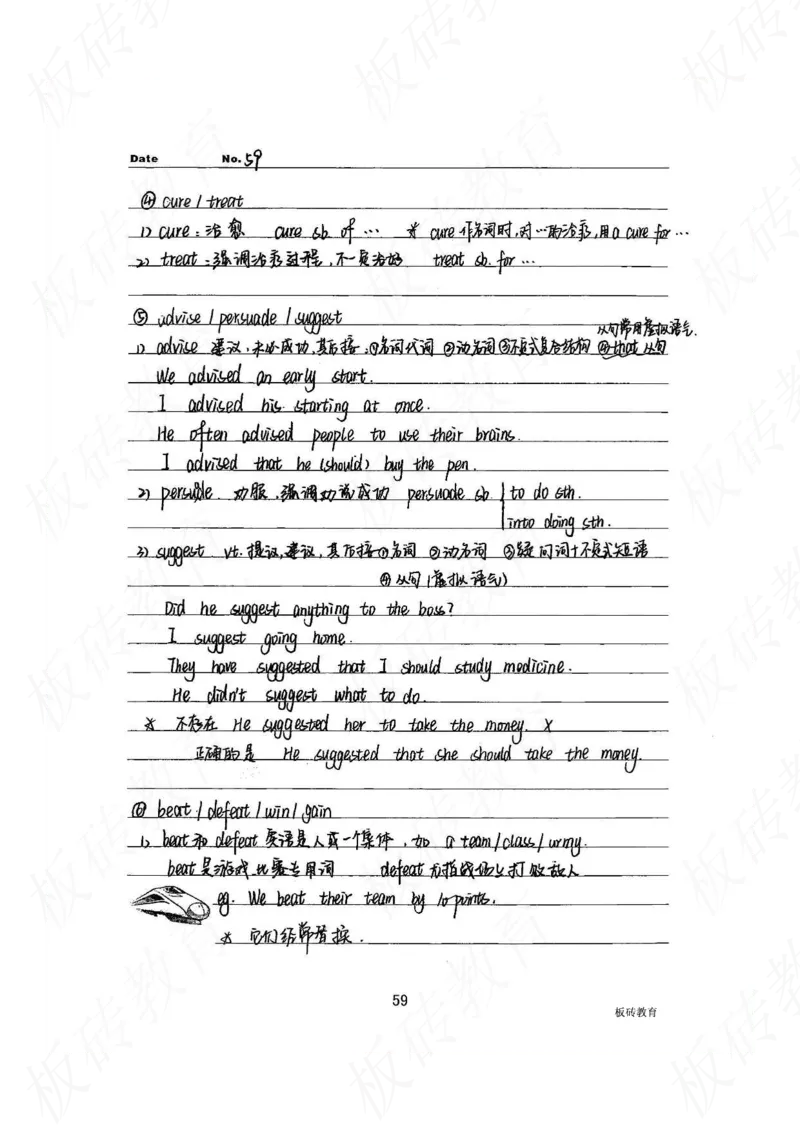 Date No. 59
④ cure / treat
1) cure：治愈 cure sb. of … * cure 作名词时，对…的治疗，用 a cure for …
2) treat：强调治疗过程，不一定治好 treat sb. for …
⑤ advise / persuade / suggest
从句常用虚拟语气.
1) advise 建议，未必成功，其后接：①名词代词 ②动名词 ③不定式复合结构 ④that 从句
We advised an early start.
I advised his starting at once.
He often advised people to use their brains.
I advised that he (should) buy the pen.
2) persuade. 劝服，强调劝说成功 persuade sb. to do sth.
into doing sth.
3) suggest vt. 提议，建议，其后接①名词 ②动名词 ③疑问词+不定式短语
④从句（虚拟语气）
Did he suggest anything to the boss?
I suggest going home.
They have suggested that I should study medicine.
He didn't suggest what to do.
* 不存在 He suggested her to take the money. X
正确的是 He suggested that she should take the money.
⑥ beat / defeat / win / gain
1) beat 和 defeat 宾语是人或一个集体，如 a team / class / army.
beat 是游戏比赛专用词 defeat 尤指战场上打败敌人
eg. We beat their team by 10 points.
* 它们经常替换.
59
板砖教育